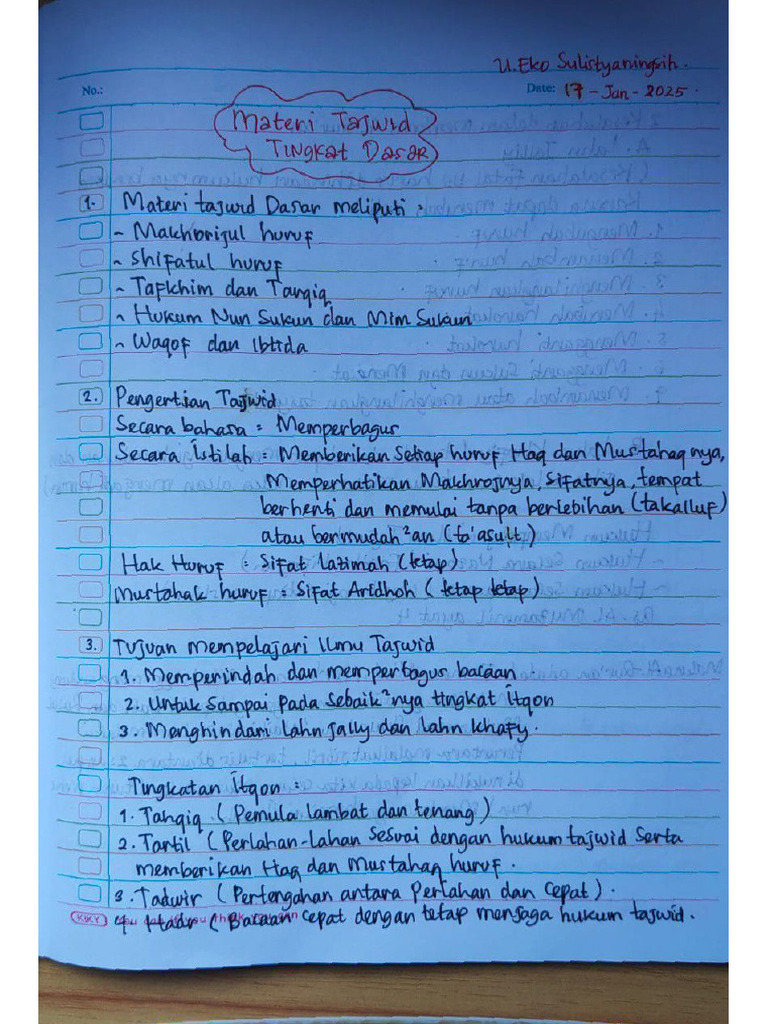 U. Eko Sulistyaningsih.
No.:
Date: 17 - Jan - 2025
Materi Tajwid
Tingkat Dasar
1. Materi tajwid Dasar meliputi :
~ Makhorijul huruf
~ Shifatul huruf
~ Tafkhim dan Tarqiq
~ Hukum Nun Sukun dan Mim Sukun
~ Waqof dan Ibtida
2. Pengertian Tajwid
Secara bahasa = Memperbagus
Secara Istilah = Memberikan Setiap huruf Haq dan Mustahaqnya,
Memperhatikan Makhrojnya, Sifatnya, tempat
berhenti dan memulai tanpa berlebihan (takalluf)
atau bermudah²an (ta'asult)
Hak Huruf = Sifat Lazimah (tetap)
Mustahak huruf = Sifat Aridhoh ( tetap tetap )
3. Tujuan mempelajari Ilmu Tajwid
1. Memperindah dan memperbagus bacaan
2. Untuk Sampai pada Sebaik²nya tingkat Itqon
3. Menghindari lahn jally dan lahn khafy.
Tingkatan Itqon :
1. Tahqiq ( Pemula lambat dan tenang )
2. Tartil ( Perlahan-lahan Sesuai dengan hukum tajwid Serta
memberikan Haq dan Mustahaq huruf .
3. Tadwir ( Pertengahan antara Perlahan dan Cepat ) .
KIKY
4 Hadr ( Bacaan cepat dengan tetap menjaga hukum tajwid.